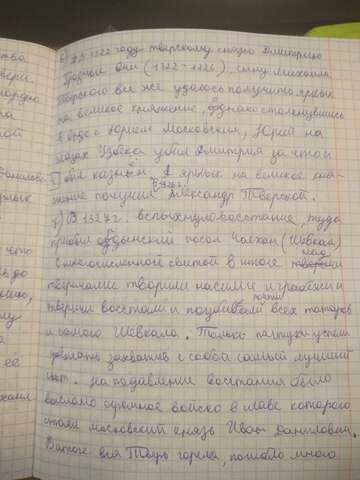 в) В 1322 году тверскому князю Дмитрию
Грозные Очи (1322 - 1326), сыну Михаила
Тверского все же удалось получить ярлык
на великое княжение, однако столкнувшись
в Орде с Юрием Московским, Юрий на
глазах Узбека убил Дмитрия за что и
был казнён. А ярлык на великое кня-
(1326г.)
жение получил Александр Тверской.
г) В 1327г. вспыхнуло восстание, туда
прибыл ордынский посол Чолхан (Шевкал)
с многочисленной свитой в итоге над
тверичами творили насилия и грабежи
тверичи восстали и поубивали почти всех татаров
и самого Шевкала. Только пастухи успели
захватив с собой самый лучший
скот. На подавление восстания было
послано огромное войско в главе которого
стоял московский князь Иван Данилович.
В итоге вся Тверь горела, погибло много
ства
вери.
ой
что
сь до
му
а
ее